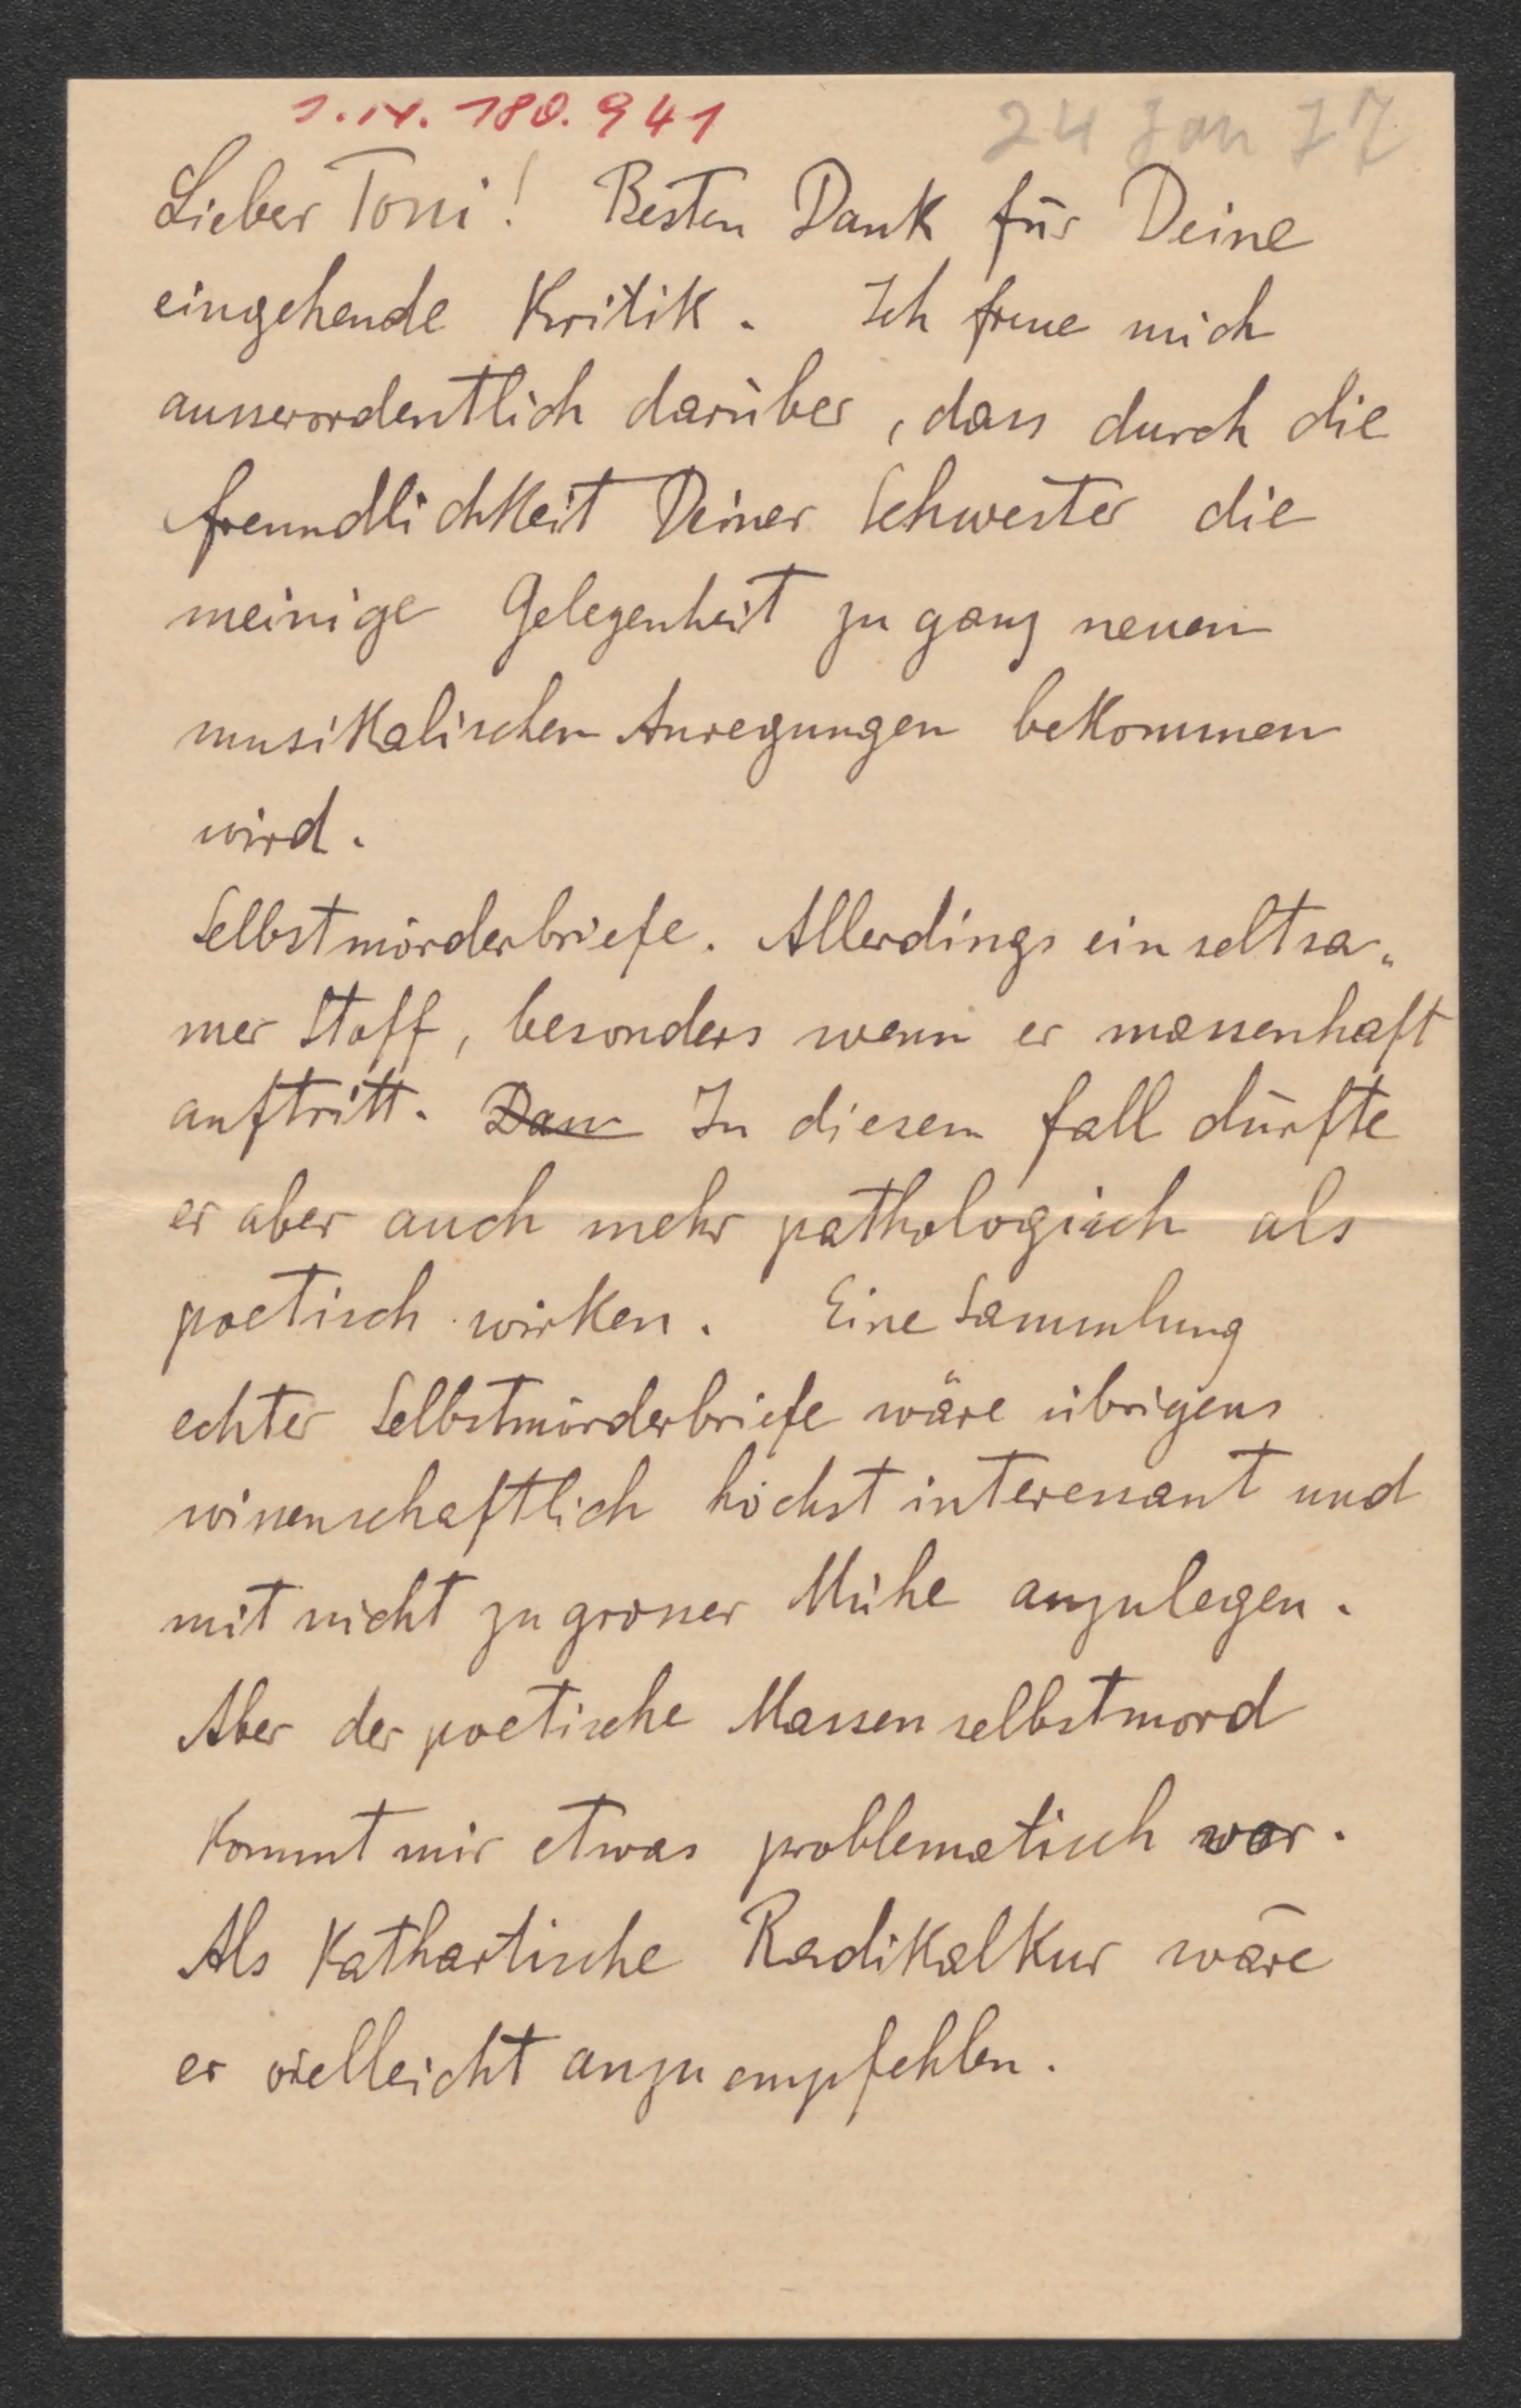 1.IV.180.941
24 Jan 37
Lieber Toni! Besten Dank für Deine
eingehende Kritik. Ich freue mich
ausserordentlich darüber, dass durch die
Freundlichkeit Deiner Schwester die
meinige Gelegenheit zu ganz neuen
musikalischen Anregungen bekommen
wird.
Selbstmörderbriefe. Allerdings ein seltsa„
mer Stoff, besonders wenn er massenhaft
auftritt. Dan In diesem Fall dürfte
er aber auch mehr pathologisch als
poetisch wirken. Eine Sammlung
echter Selbstmörderbriefe wäre übrigens
wissenschaftlich höchst interessant und
mit nicht zu grosser Mühe anzulegen.
Aber der poetische Massenselbstmord
kommt mir etwas problematisch vor.
Als Kathartische Radikalkur wäre
er vielleicht anzuempfehlen.